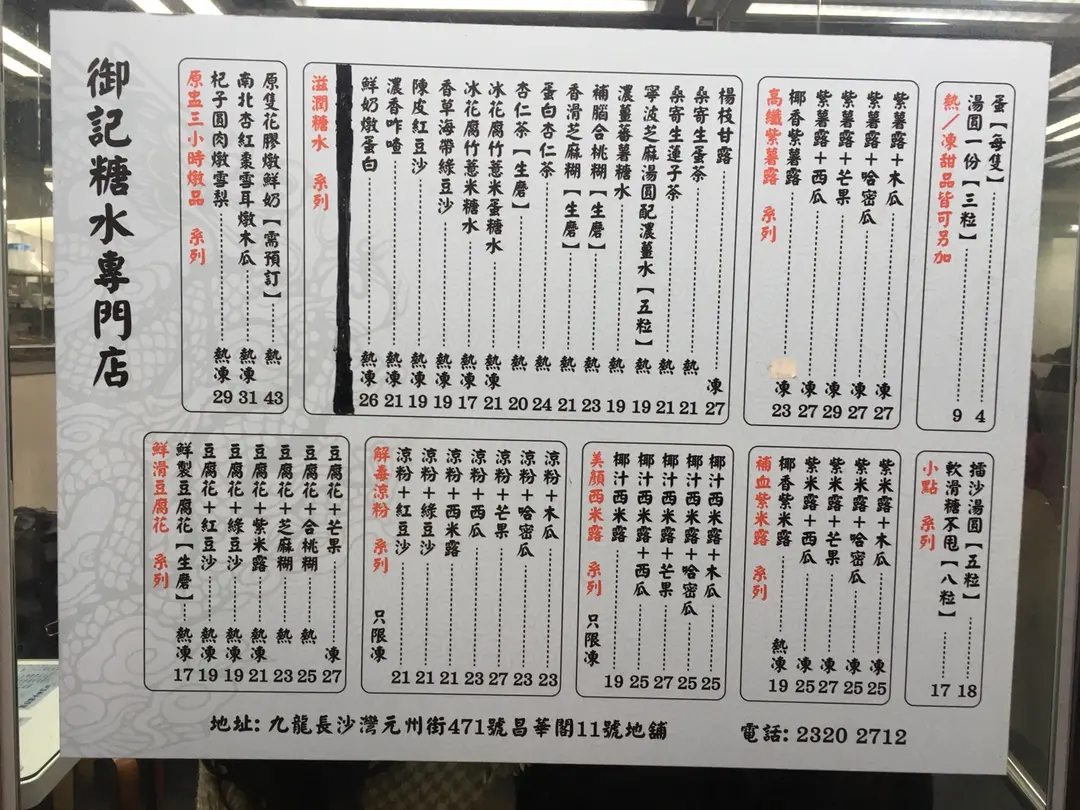 御記糖水專門店
原盅三小時燉品 系列
杞子圓肉燉雪梨 熱凍 29
南北杏紅棗雪耳燉木瓜 熱凍 31
原隻花膠燉鮮奶【需預訂】 熱 43
滋潤糖水 系列
鮮奶燉蛋白 熱凍 26
濃香咋喳 熱凍 21
陳皮紅豆沙 熱凍 19
香草海帶綠豆沙 熱凍 19
冰花腐竹薏米糖水 熱凍 17
冰花腐竹薏米蛋糖水 熱凍 21
杏仁茶【生磨】 熱 20
蛋白杏仁茶 熱 24
香滑芝麻糊【生磨】 熱 21
補腦合桃糊【生磨】 熱 23
濃薑蕃薯糖水 熱 19
寧波芝麻湯圓配濃薑水【五粒】 熱 19
桑寄生蓮子茶 熱 21
桑寄生蛋茶 熱 21
楊枝甘露 凍 27
高纖紫薯露 系列
椰香紫薯露 凍 23
紫薯露+西瓜 凍 27
紫薯露+芒果 凍 29
紫薯露+哈密瓜 凍 27
紫薯露+木瓜 凍 27
熱/凍甜品皆可另加
湯圓一份【三粒】 9
蛋【每隻】 4
鮮滑豆腐花 系列
鮮製豆腐花【生磨】 熱凍 17
豆腐花+紅豆沙 熱凍 19
豆腐花+綠豆沙 熱凍 19
豆腐花+紫米露 熱凍 21
豆腐花+芝麻糊 熱 23
豆腐花+合桃糊 熱 25
豆腐花+芒果 凍 27
解毒涼粉 系列 只限凍
涼粉+紅豆沙 21
涼粉+綠豆沙 21
涼粉+西米露 21
涼粉+西瓜 23
涼粉+芒果 27
涼粉+哈密瓜 23
涼粉+木瓜 23
美顏西米露 系列 只限凍
椰汁西米露 19
椰汁西米露+西瓜 25
椰汁西米露+芒果 27
椰汁西米露+哈密瓜 25
椰汁西米露+木瓜 25
補血紫米露 系列
椰香紫米露 熱凍 19
紫米露+西瓜 凍 25
紫米露+芒果 凍 27
紫米露+哈密瓜 凍 25
紫米露+木瓜 凍 25
小點 系列
軟滑糖不甩【八粒】 17
擂沙湯圓【五粒】 18
地址: 九龍長沙灣元州街471號昌華閣11號地舖
電話: 2320 2712